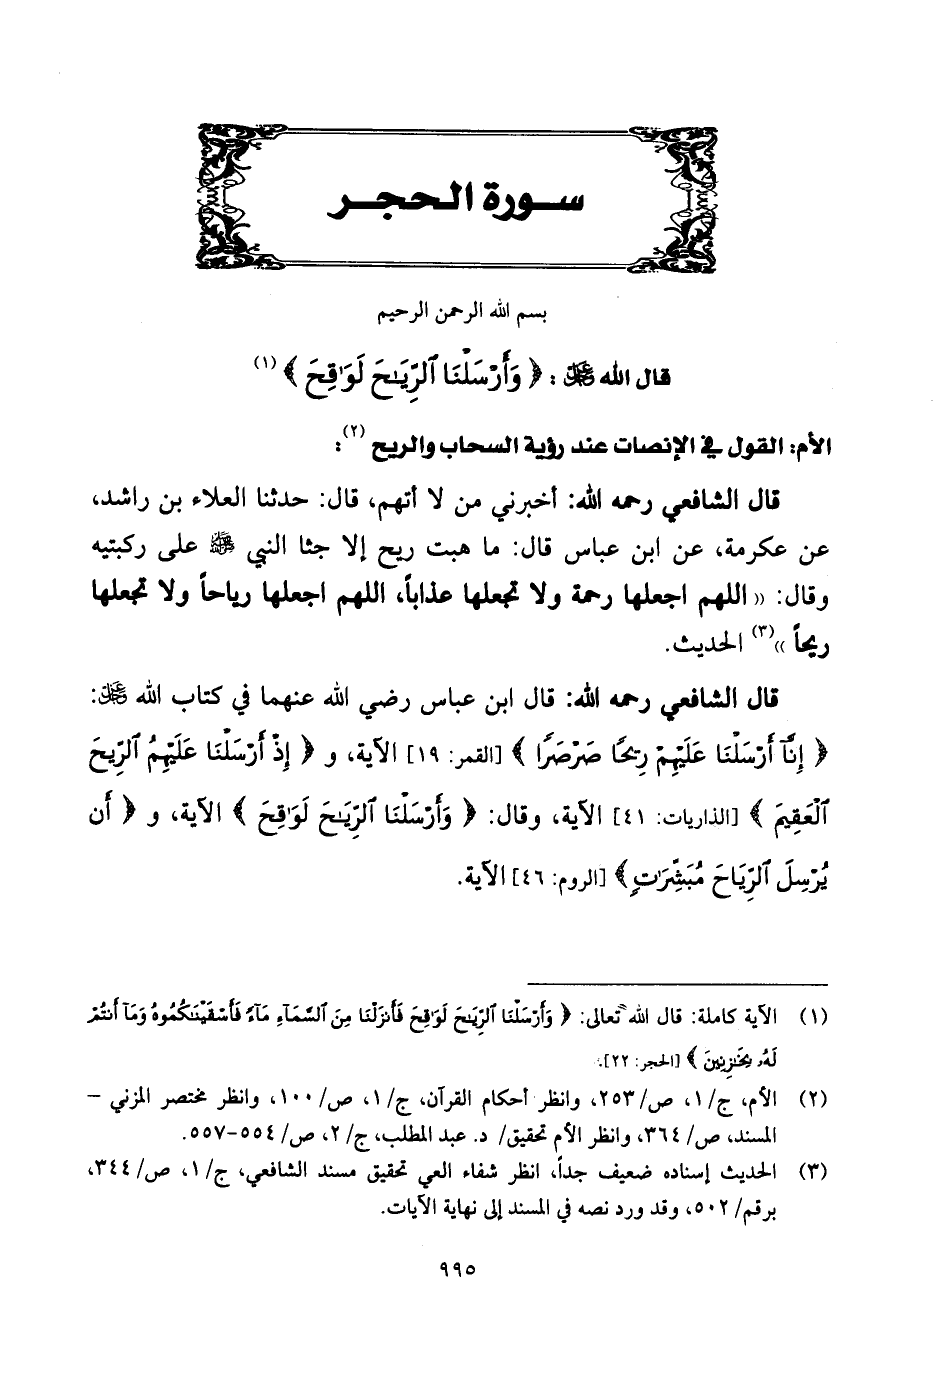 سورة الحجر
بسم الله الرحمن الرحيم
قال الله ﷻ: ﴿ وَأَرْسَلْنَا ٱلرِّيَـٰحَ لَوَٰقِحَ ﴾ (١)
الأم: القول في الإنصات عند رؤية السحاب والريح (٢):
قال الشافعي رحمه الله: أخبرني من لا أتهم، قال: حدثنا العلاء بن راشد،
عن عكرمة، عن ابن عباس قال: ما هبت ريح إلا جثا النبي ﷺ على ركبتيه
وقال: «اللهم اجعلها رحمة ولا تجعلها عذاباً، اللهم اجعلها رياحاً ولا تجعلها
ريحاً»(٣) الحديث.
قال الشافعي رحمه الله: قال ابن عباس رضي الله عنهما في كتاب الله ﷻ:
﴿ إِنَّآ أَرْسَلْنَا عَلَيْهِمْ رِيحًا صَرْصَرًا ﴾ [القمر: ١٩] الآية، و ﴿ إِذْ أَرْسَلْنَا عَلَيْهِمُ ٱلرِّيحَ
ٱلْعَقِيمَ ﴾ [الذاريات: ٤١] الآية، وقال: ﴿ وَأَرْسَلْنَا ٱلرِّيَـٰحَ لَوَٰقِحَ ﴾ الآية، و ﴿ أَن
يُرْسِلَ ٱلرِّيَاحَ مُبَشِّرَٰتٍ ﴾ [الروم: ٤٦] الآية.
(١) الآية كاملة: قال الله تعالى: ﴿ وَأَرْسَلْنَا ٱلرِّيَـٰحَ لَوَٰقِحَ فَأَنزَلْنَا مِنَ ٱلسَّمَآءِ مَآءً فَأَسْقَيْنَـٰكُمُوهُ وَمَآ أَنتُمْ
لَهُۥ بِخَـٰزِنِينَ ﴾ [الحجر: ٢٢].
(٢) الأم، ج/١، ص/٢٥٣، وانظر أحكام القرآن، ج/١، ص/١٠٠، وانظر مختصر المزني –
المسند، ص/٣٦٤، وانظر الأم تحقيق/ د. عبد المطلب، ج/٢، ص/٥٥٤-٥٥٧.
(٣) الحديث إسناده ضعيف جداً، انظر شفاء العي تحقيق مسند الشافعي، ج/١، ص/٣٤٤،
برقم/٥٠٢، وقد ورد نصه في المسند إلى نهاية الآيات.
٩٩٥